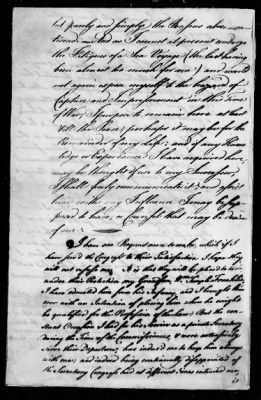 but purely and simply the Reasons above men-
tioned. And as I cannot at present undergo
the Fatigues of a Sea Voyage (the last having
been almost too much for me) and would
not again expose myself to the Hazard of
Capture and Imprisonment in this Time
of War, I purpose to remain here at least
till the Peace; perhaps it may be for the
Remainder of my Life; and if any Know-
ledge or Experience I have acquired here
may be thought of use to my Successor,
I shall freely communicate it, and assist
him with any Influence I may be sup-
posed to have, or Counsel that may be desired
of me.
I have one Request more to make, which if I
have serv'd the Congress to their Satisfaction I hope they
will not refuse me. It is that they will be pleased to take
under their Protection my Grandson W. Temple Franklin.
I have
now with an Intention of placing him when he might
be qualified for the Profession of the Law. But the con-
stant Occasion I had for his Service as a private Secretary
during the Time of the Commissioners, and more extensively
since their Departure, has induced me to keep him always
with me; and indeed being continually disappointed of
the Secretary Congress had at different Times intended me,